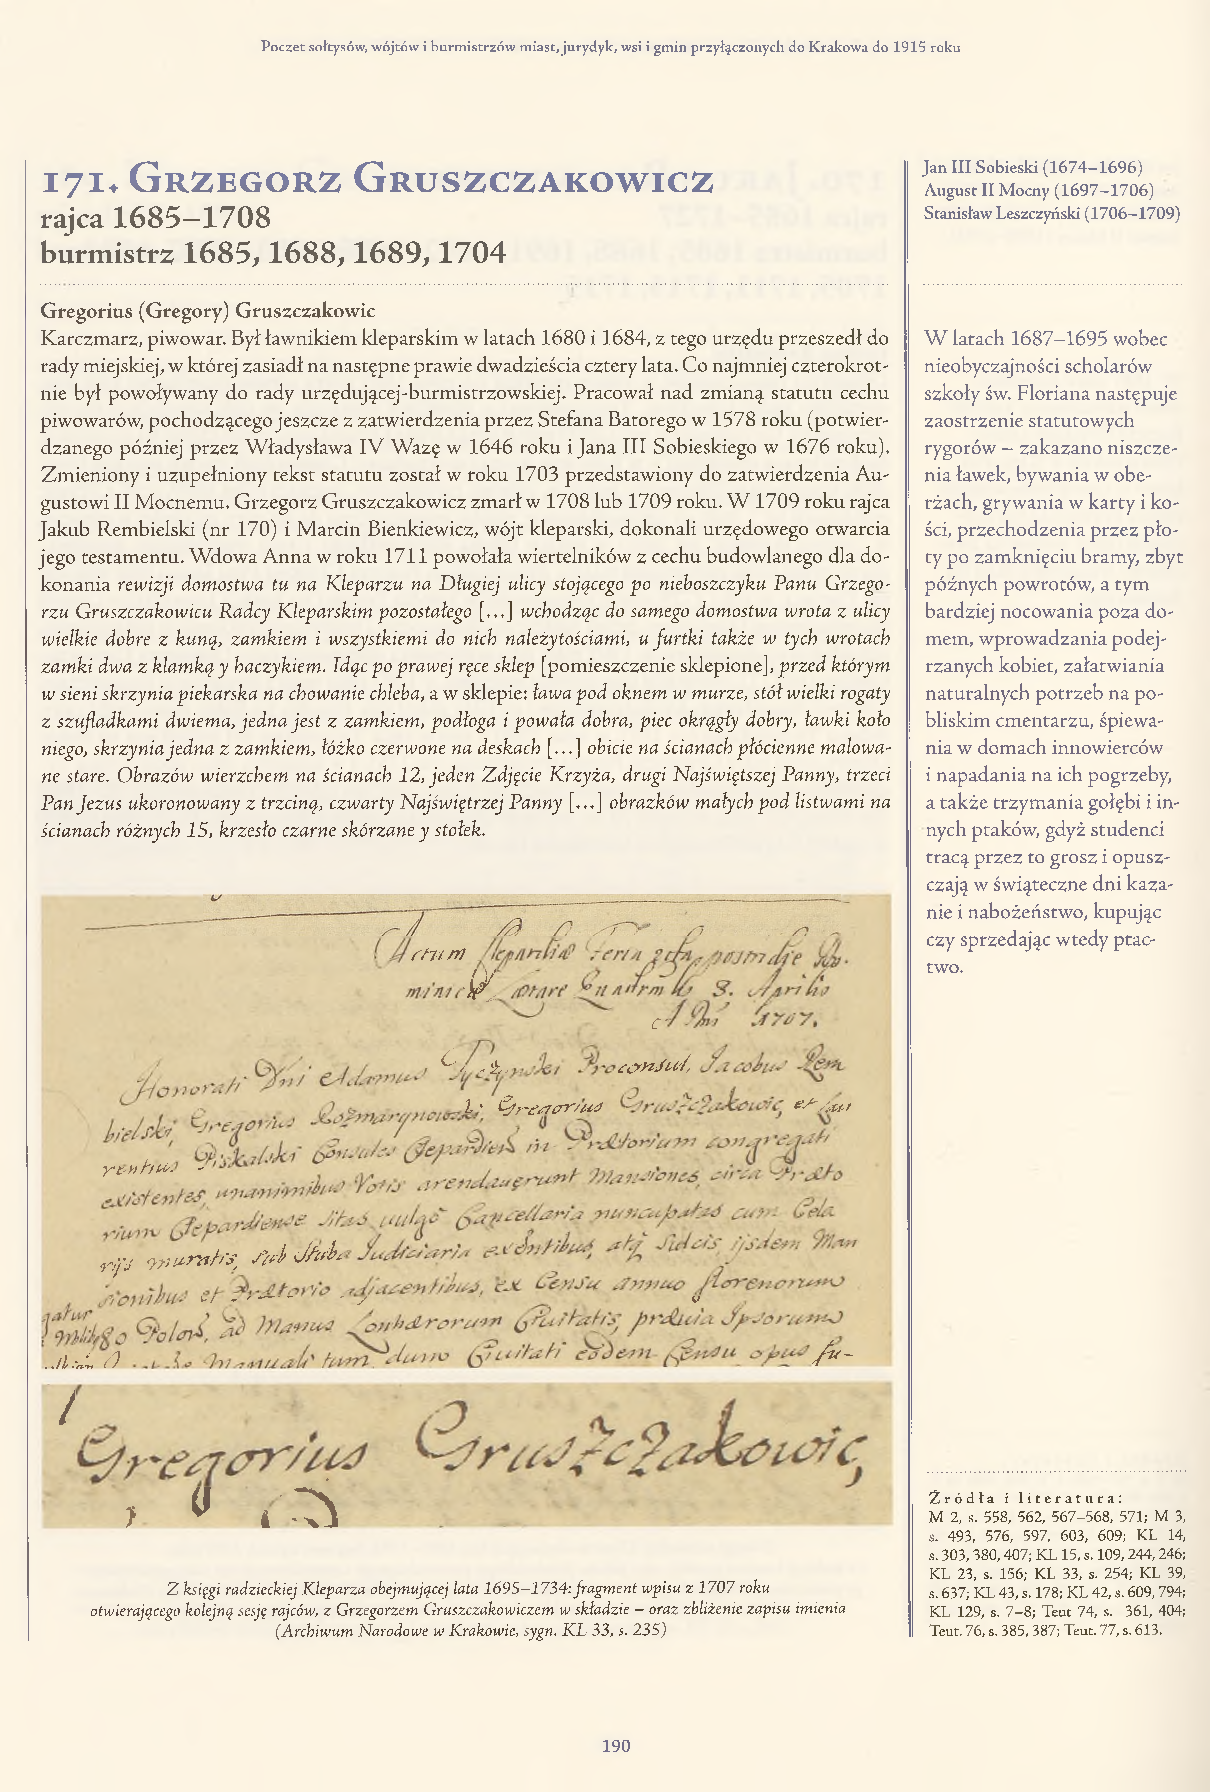 Poczet sołtysów, wójtów i burmistrzów miast, jurydyk, wsi i gmin przyłączonych do Krakowa do 1915 roku
171. Grzegorz Gruszczakowicz
rajca 1685–1708
burmistrz 1685, 1688, 1689, 1704
Gregorius (Gregory) Gruszczakowic
Karczmarz, piwowar. Był ławnikiem kleparskim w latach 1680 i 1684, z tego urzędu przeszedł do
rady miejskiej, w której zasiadł na następne prawie dwadzieścia cztery lata. Co najmniej czterokrot-
nie był powoływany do rady urzędującej-burmistrzowskiej. Pracował nad zmianą statutu cechu
piwowarów, pochodzącego jeszcze z zatwierdzenia przez Stefana Batorego w 1578 roku (potwier-
dzanego później przez Władysława IV Wazę w 1646 roku i Jana III Sobieskiego w 1676 roku).
Zmieniony i uzupełniony tekst statutu został w roku 1703 przedstawiony do zatwierdzenia Au-
gustowi II Mocnemu. Grzegorz Gruszczakowicz zmarł w 1708 lub 1709 roku. W 1709 roku rajca
Jakub Rembielski (nr 170) i Marcin Bienkiewicz, wójt kleparski, dokonali urzędowego otwarcia
jego testamentu. Wdowa Anna w roku 1711 powołała wiertelników z cechu budowlanego dla do-
konania rewizji domostwa tu na Kleparzu na Długiej ulicy stojącego po nieboszczyku Panu Grzego-
rzu Gruszczakowicu Radcy Kleparskim pozostałego [...] wchodząc do samego domostwa wrota z ulicy
wielkie dobre z kuną, zamkiem i wszystkiemi do nich należytościami, u furtki także w tych wrotach
zamki dwa z klamką y haczykiem. Idąc po prawej ręce sklep [pomieszczenie sklepione], przed którym
w sieni skrzynia piekarska na chowanie chleba, a w sklepie: ława pod oknem w murze, stół wielki rogaty
z szufladkami dwiema, jedna jest z zamkiem, podłoga i powała dobra, piec okrągły dobry, ławki koło
niego, skrzynia jedna z zamkiem, łóżko czerwone na deskach [...] obicie na ścianach płócienne malowa-
ne stare. Obrazów wierzchem na ścianach 12, jeden Zdjęcie Krzyża, drugi Najświętszej Panny, trzeci
Pan Jezus ukoronowany z trzciną, czwarty Najświętrzej Panny [...] obrazków małych pod listwami na
ścianach różnych 15, krzesło czarne skórzane y stołek.
Actum
3. Aprilis
1707.
Honorati Dni Adamus Tyczynski Proconsul, Jacobus Rem
bielski, Gregorius Rozmarynowski, Gregorius Gruszczakowic, et Lau
rentius Piskalski Consules in Prætorium congregati
existentes, unanimibus Votis arendauerunt Mansiones, circa Præto
rium Clepardiense sitas uulgo Cancellaria nuncupatas cum Cela
rijs muratis, sub Stuba Judiciaria
sionibus et Prætorio adjacentibus, ex Censu annuo florenorum
ad Manus
Censu opus fu-
Gregorius Gruszczakowic,
Z księgi radzieckiej Kleparza obejmującej lata 1695–1734: fragment wpisu z 1707 roku
otwierającego kolejną sesję rajców, z Grzegorzem Gruszczakowiczem w składzie – oraz zbliżenie zapisu imienia
(Archiwum Narodowe w Krakowie, sygn. KL 33, s. 235)
Jan III Sobieski (1674–1696)
August II Mocny (1697–1706)
Stanisław Leszczyński (1706–1709)
W latach 1687–1695 wobec
nieobyczajności scholarów
szkoły św. Floriana następuje
zaostrzenie statutowych
rygorów – zakazano niszcze-
nia ławek, bywania w obe-
rżach, grywania w karty i ko-
ści, przechodzenia przez pło-
ty po zamknięciu bramy, zbyt
późnych powrotów, a tym
bardziej nocowania poza do-
mem, wprowadzania podej-
rzanych kobiet, załatwiania
naturalnych potrzeb na po-
bliskim cmentarzu, śpiewa-
nia w domach innowierców
i napadania na ich pogrzeby,
a także trzymania gołębi i in-
nych ptaków, gdyż studenci
tracą przez to grosz i opusz-
czają w świąteczne dni kaza-
nie i nabożeństwo, kupując
czy sprzedając wtedy ptac-
two.
Źródła i literatura:
M 2, s. 558, 562, 567–568, 571; M 3,
s. 493, 576, 597, 603, 609; KL 14,
s. 303, 380, 407; KL 15, s. 109, 244, 246;
KL 23, s. 156; KL 33, s. 254; KL 39,
s. 637; KL 43, s. 178; KL 42, s. 609, 794;
KL 129, s. 7–8; Teut 74, s. 361, 404;
Teut. 76, s. 385, 387; Teut. 77, s. 613.
190